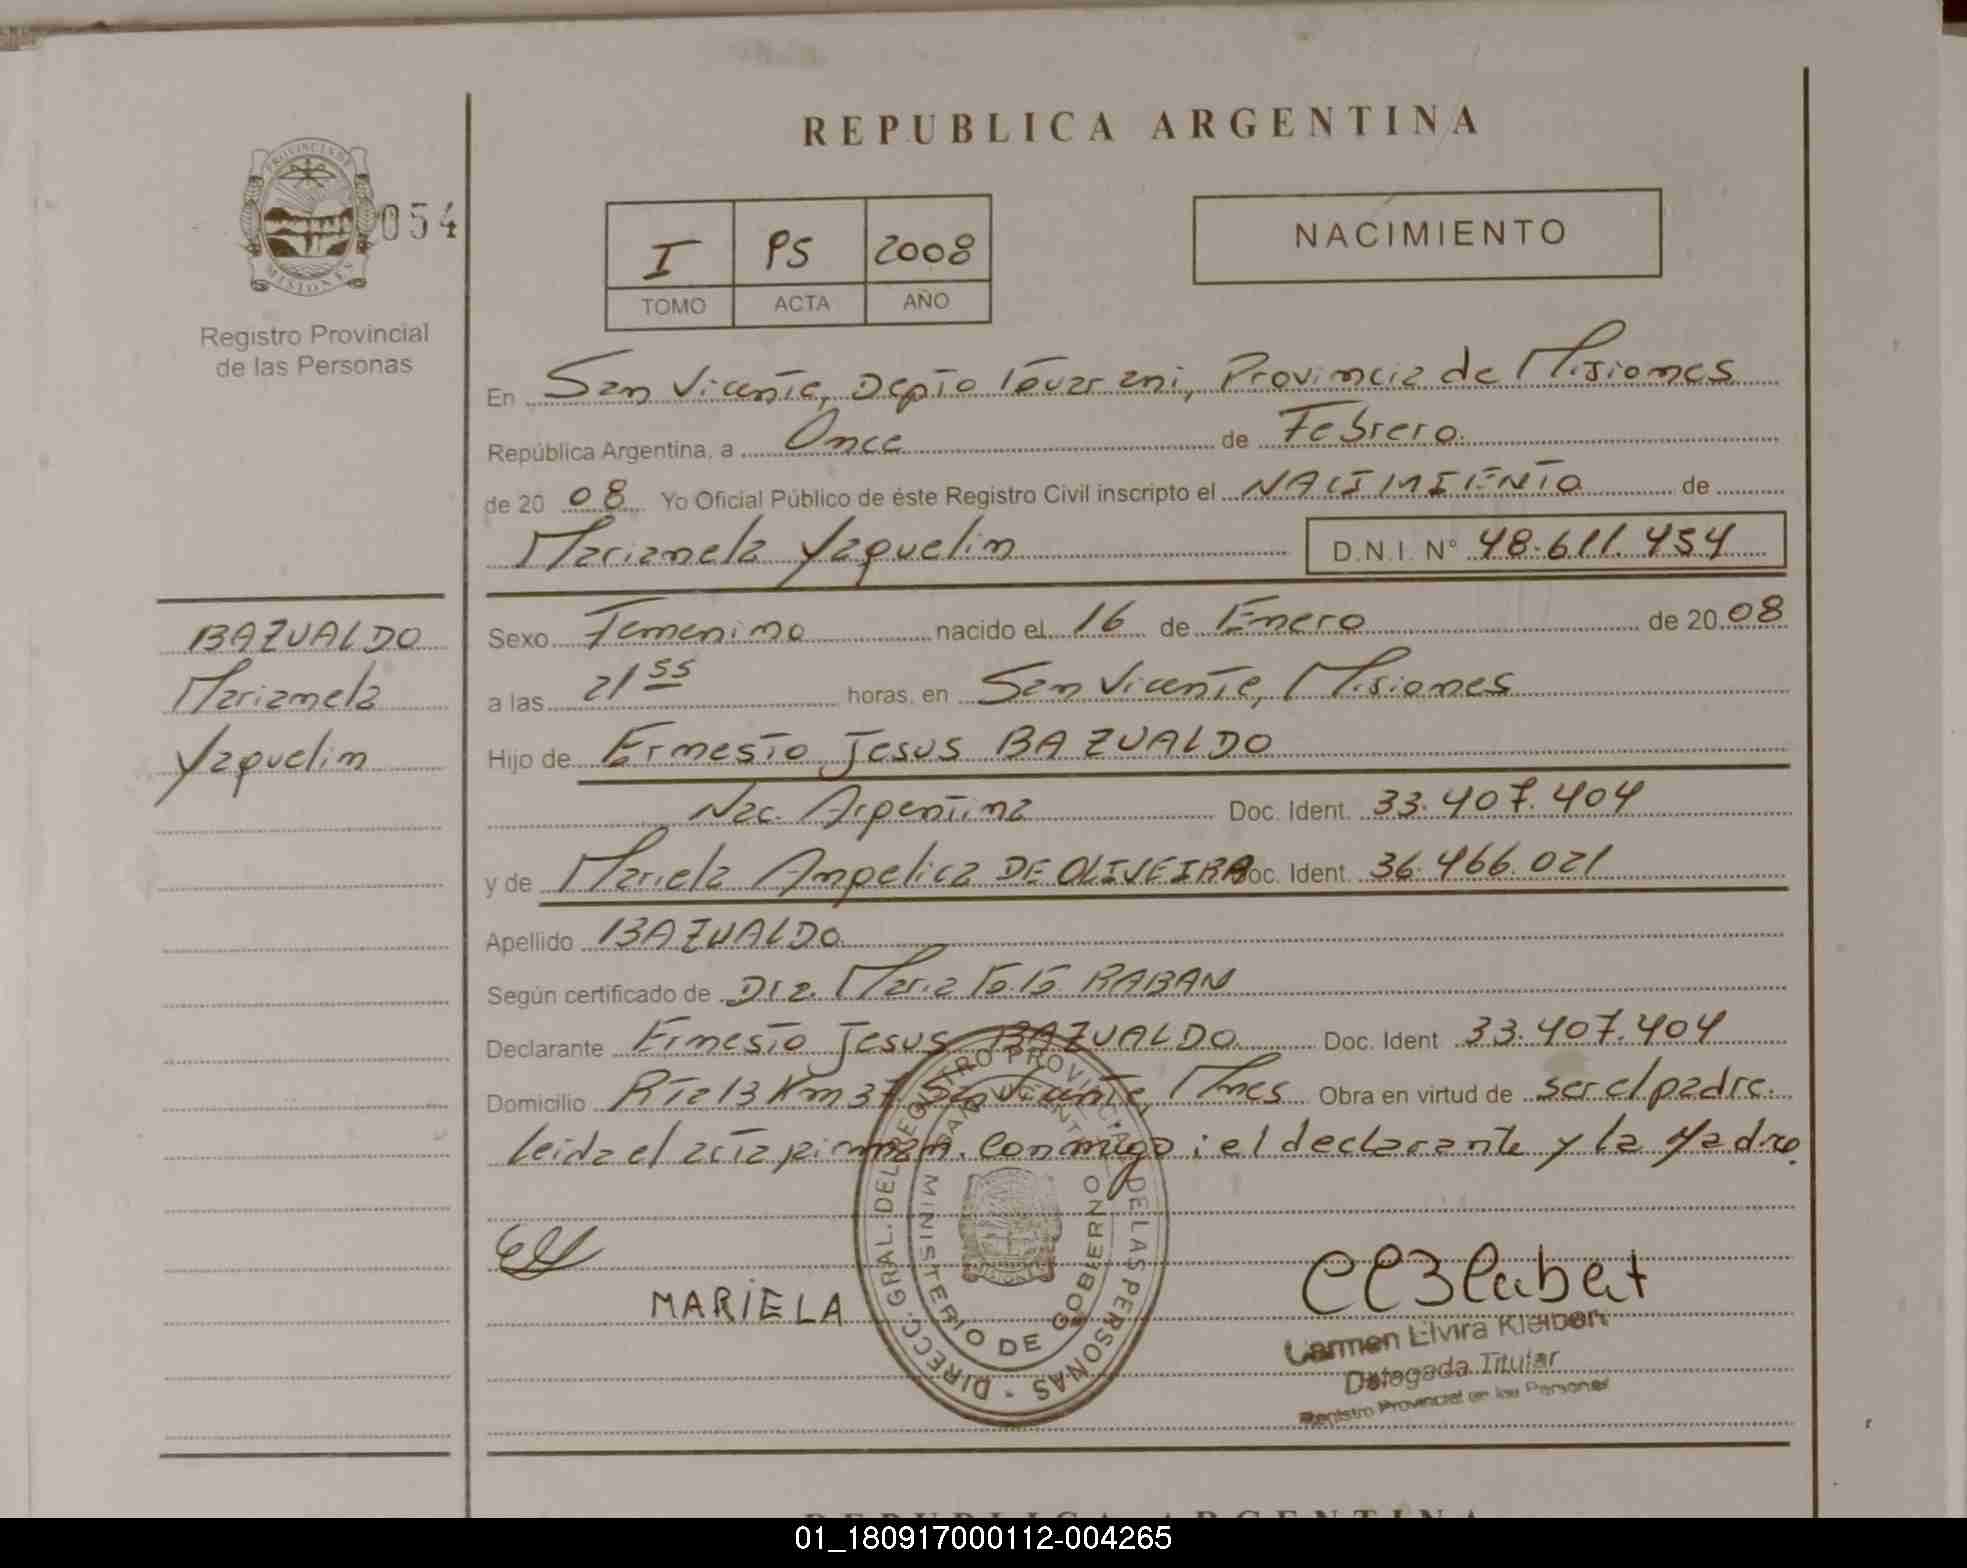 REPUBLICA ARGENTINA
PROVINCIA DE
MISIONES
054
Registro Provincial
de las Personas
I PS 2008
TOMO ACTA AÑO
NACIMIENTO
En San Vicente, Depto Guarani, Provincia de Misiones
República Argentina, a Once de Febrero.
de 20 08 Yo Oficial Público de éste Registro Civil inscripto el NACIMIENTO de
Marianela Yaquelin D.N.I. N° 48.611.454
BAZUALDO
Marianela
Yaquelin
Sexo Femenino nacido el 16 de Enero de 20 08
a las 21 55 horas, en San Vicente, Misiones
Hijo de Ernesto Jesus BAZUALDO
Nac. Argentina Doc. Ident. 33.407.404
y de Mariela Angelica DE OLIVEIRA Doc. Ident. 36.466.021
Apellido BAZUALDO
Según certificado de Dra. Maria RABAN
Declarante Ernesto Jesus BAZUALDO Doc. Ident 33.407.404
Domicilio Rta 13 Km 37 San Vicente, Mnes Obra en virtud de ser el padre.
Leida el acta firman. Conmigo: el declarante y la Madre.
DIRECC. GRAL. DEL REGISTRO PROVINCIAL DE LAS PERSONAS
SAN VICENTE
MINISTERIO DE GOBIERNO
MARIELA
Carmen Elvira Kleibert
Delegada Titular
Registro Provincial de las Personas
REPUBLICA ARGENTINA
01_180917000112-004265